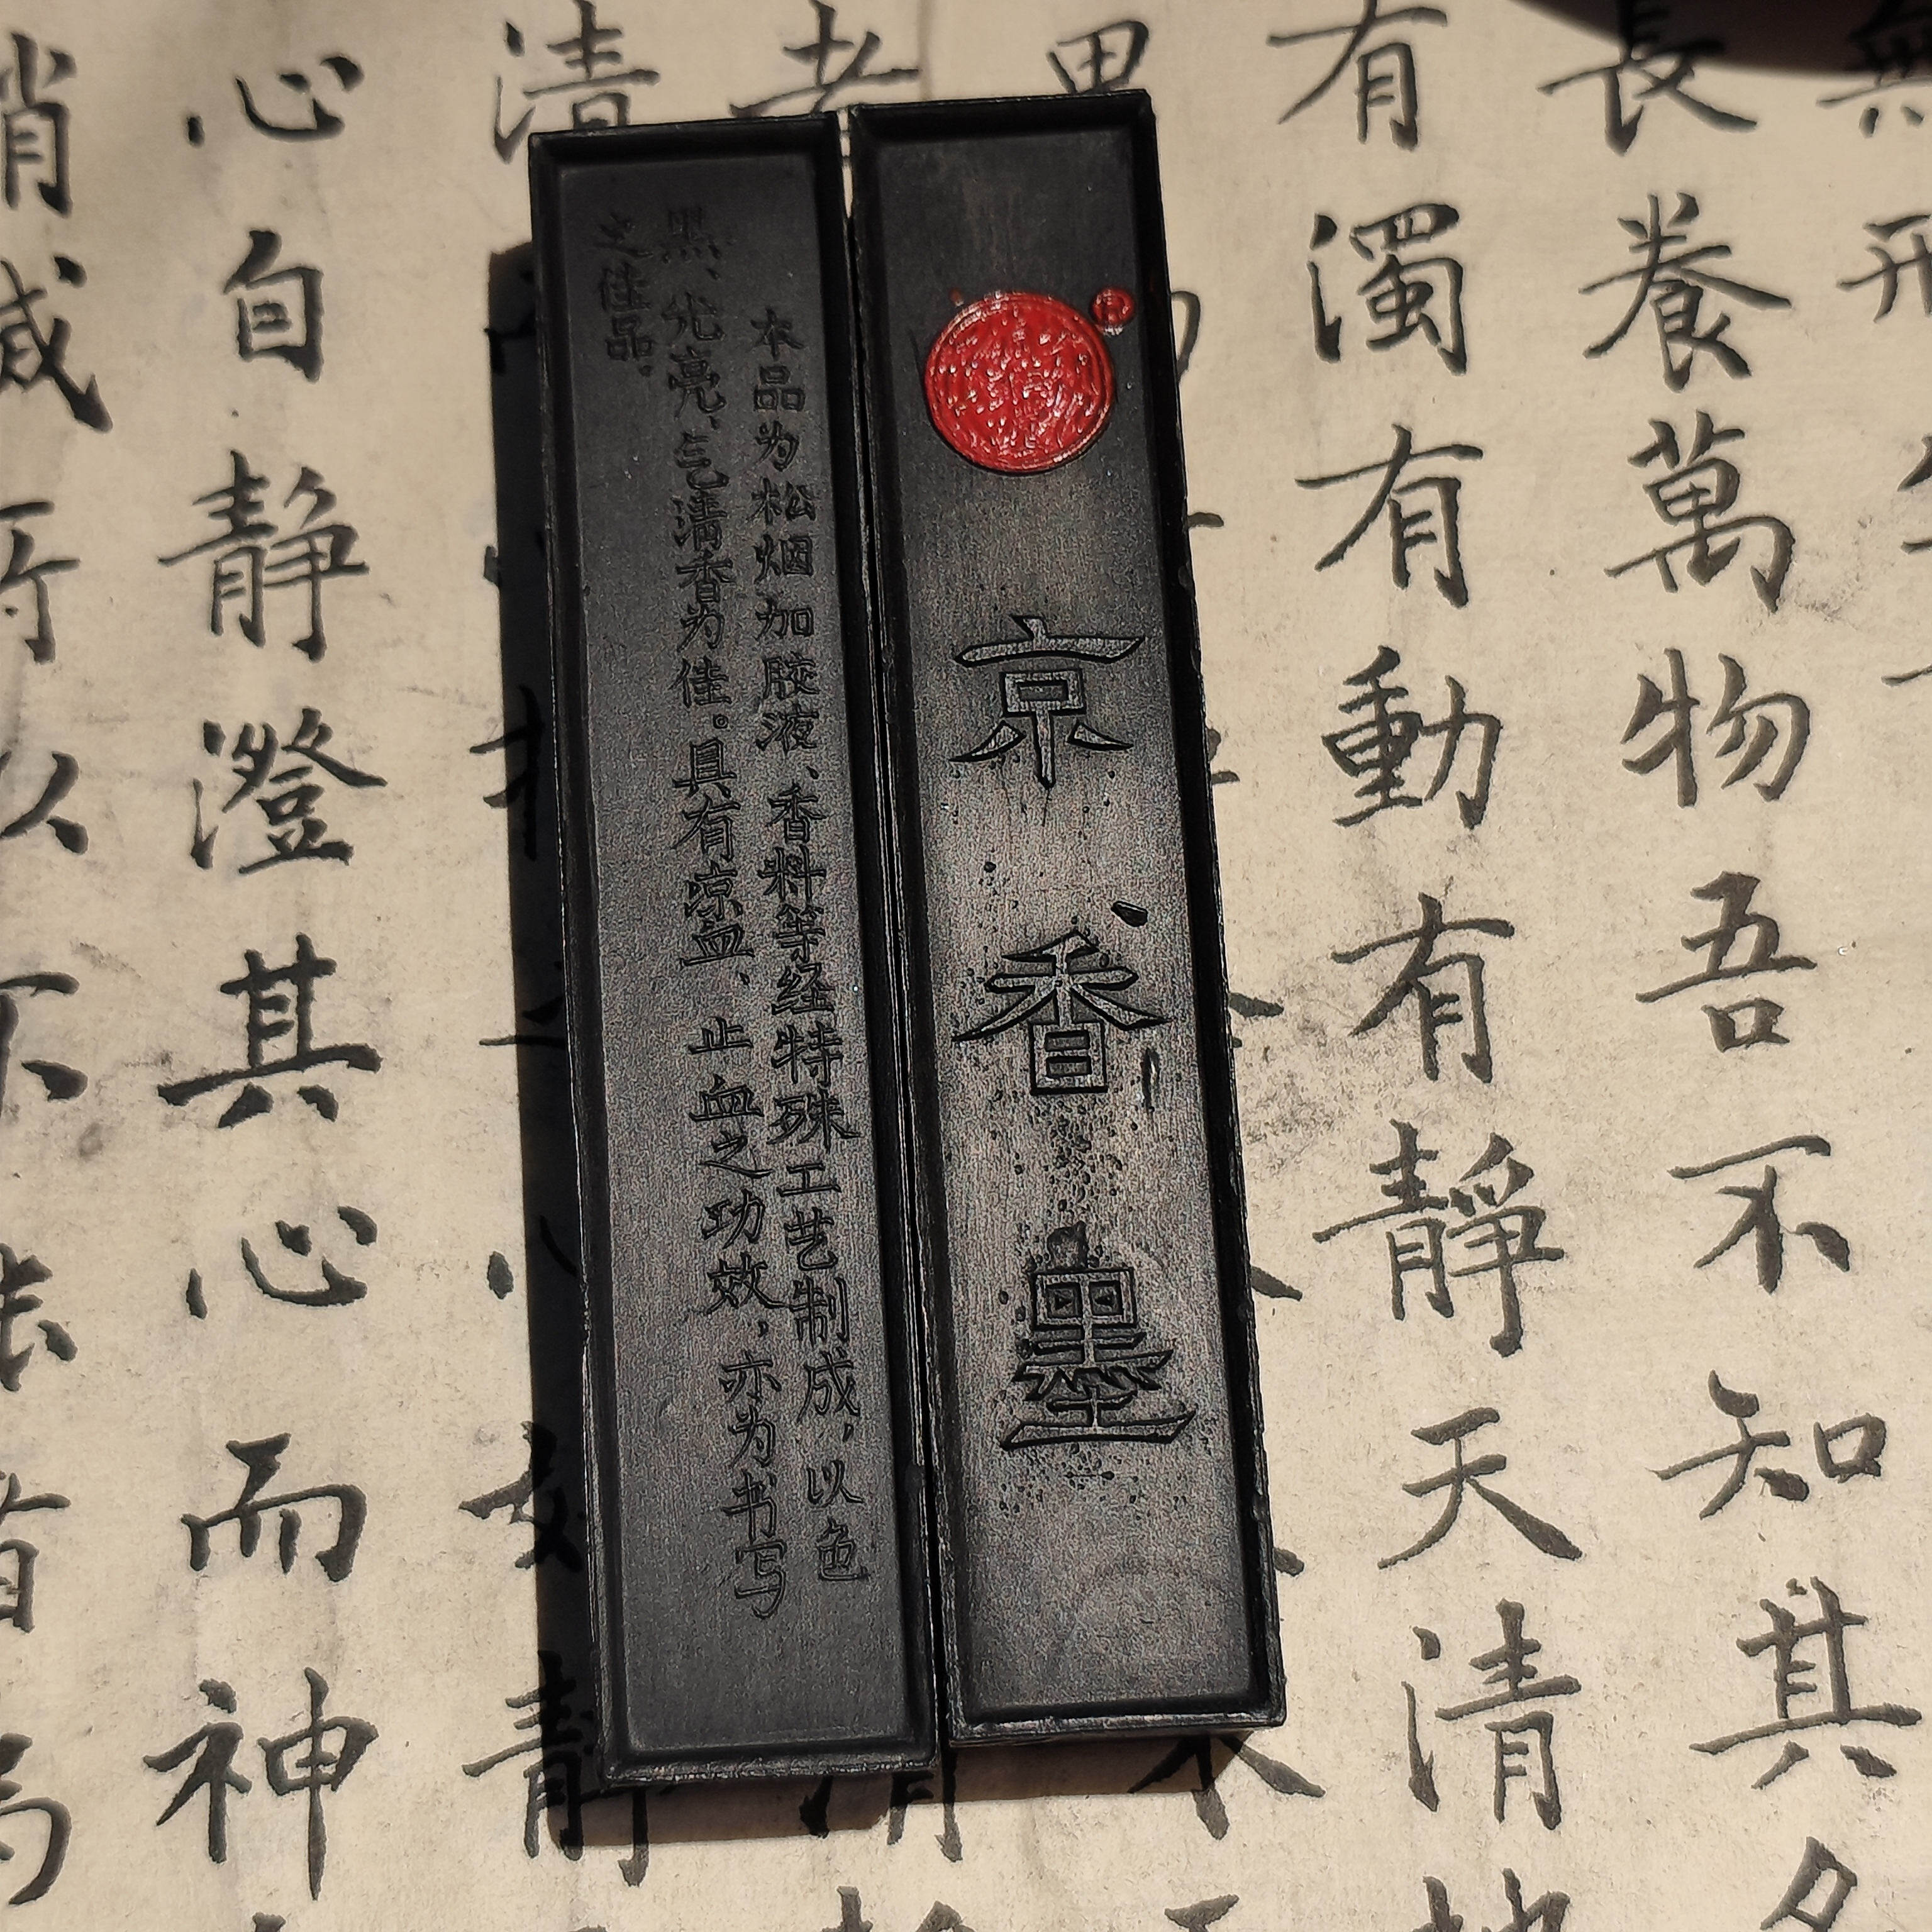 無形
長養萬物吾不知其名
有濁有動有靜天清地
京香墨
本品为松烟加胶液、香料等经特殊工艺制成，以色
黑、光亮，气清香为佳。具有凉血、止血之功效，亦为书写
之佳品。
心自静澄其心而神
消滅所以不能者為